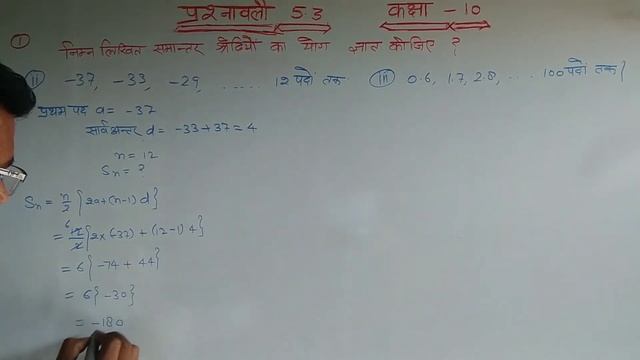 प्रश्नावली 5.3 कक्षा - 10
① निम्न लिखित समान्तर श्रेढियों का योग ज्ञात कीजिए ?
(ii) -37, -33, -29, ...... 12 पदों तक (iii) 0.6, 1.7, 2.8, ... 100 पदों तक
प्रथम पद a = -37
सार्वअन्तर d = -33+37 = 4
n = 12
Sn = ?
Sn = n/2 {2a+(n-1)d}
= 6 12/2 {2×(-37) + (12-1)4}
= 6{-74 + 44}
= 6{-30}
= -180